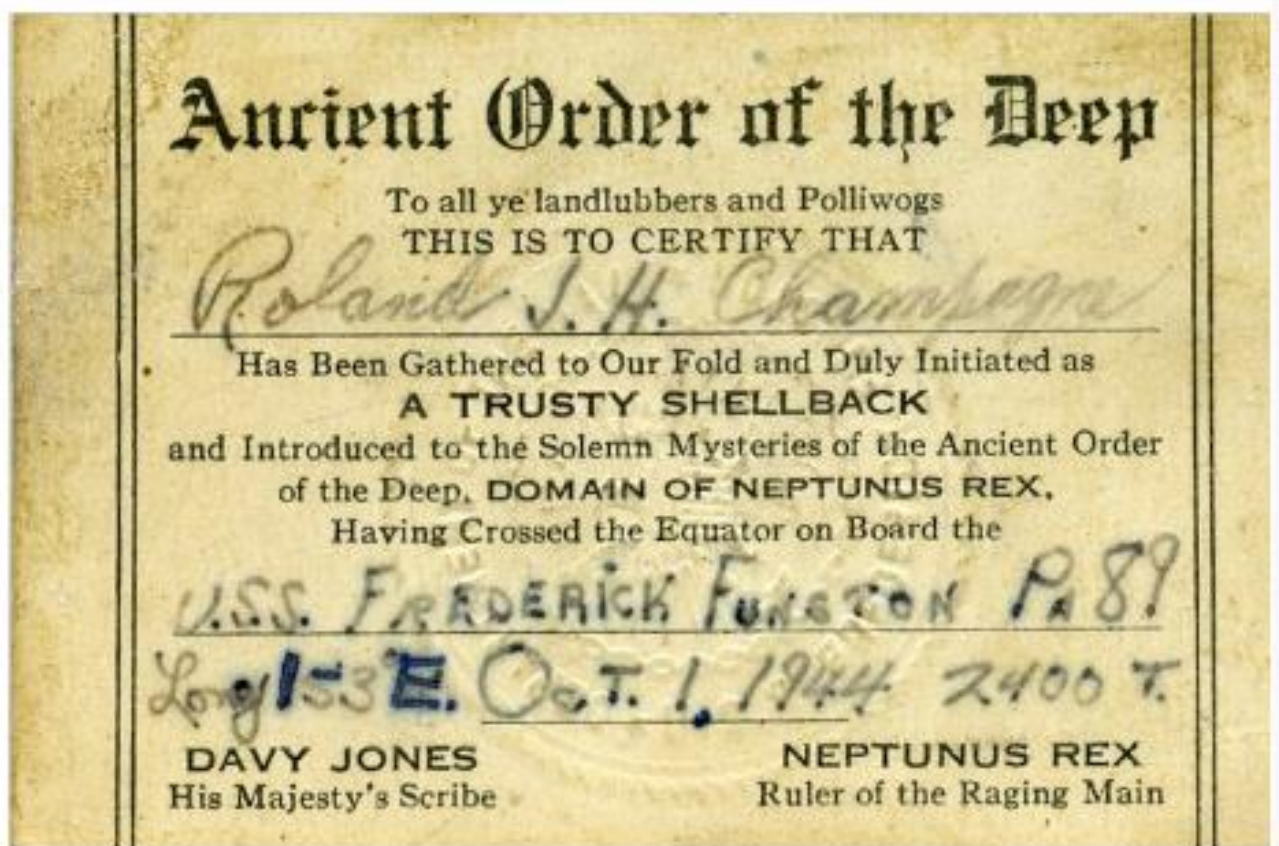 Ancient Order of the Deep
To all ye landlubbers and Polliwogs
THIS IS TO CERTIFY THAT
Roland J. H. Champagne
Has Been Gathered to Our Fold and Duly Initiated as
A TRUSTY SHELLBACK
and Introduced to the Solemn Mysteries of the Ancient Order
of the Deep. DOMAIN OF NEPTUNUS REX.
Having Crossed the Equator on Board the
U.S.S. FREDERICK FUNSTON PA 89
Long E. Oct. 1, 1944 2400 T.
DAVY JONES NEPTUNUS REX
His Majesty's Scribe Ruler of the Raging Main